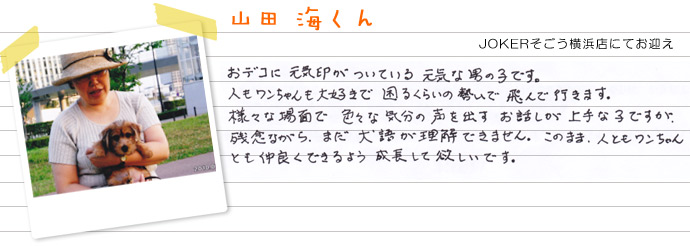 山田 海くん
JOKERそごう横浜店にてお迎え
おデコに元気印がついている元気な男の子です。
人もワンちゃんも大好きで 困るくらいの勢いで 飛んで行きます。
様々な場面で 色々な気分の声を出す お話しが上手な子ですが、
残念ながら、まだ犬語が理解できません。このまま、人ともワンちゃん
とも仲良くできるよう 成長して欲しいです。